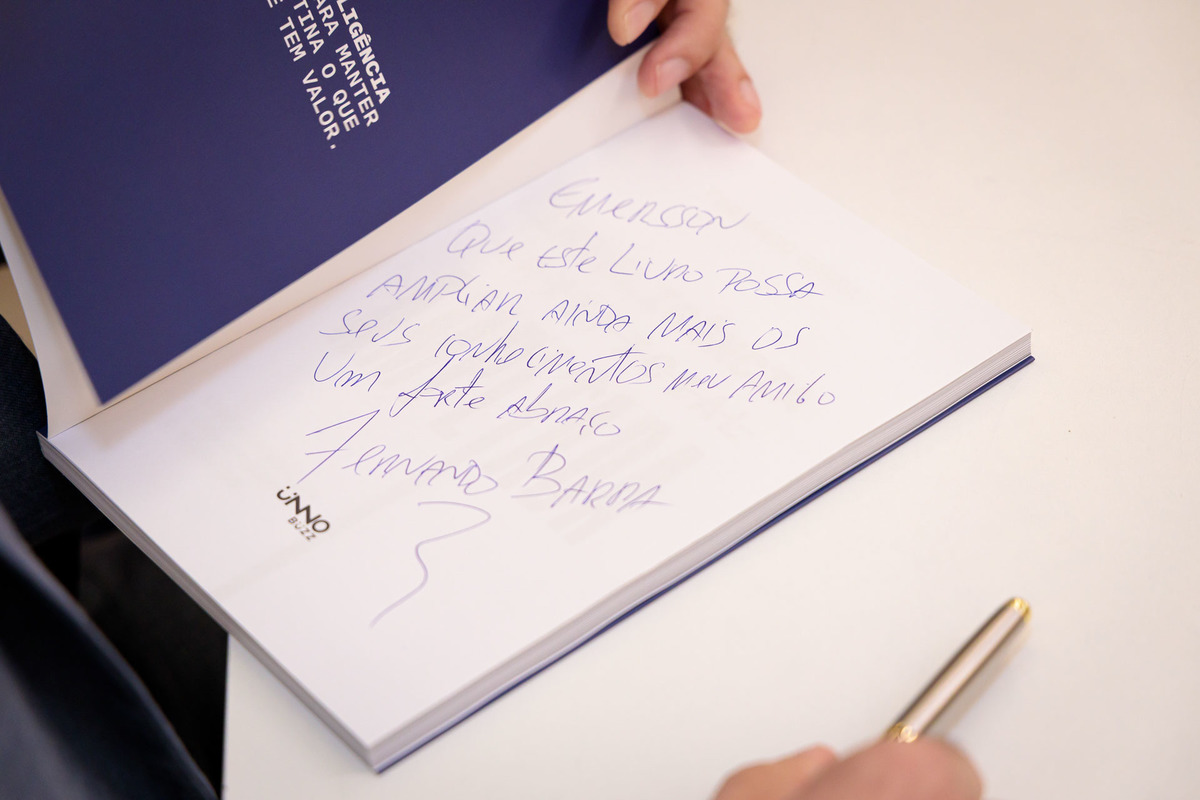 LIGÊNCIA
ARA MANTER
TINA O QUE
E TEM VALOR.
EMERSSON
QUE ESTE LIVRO POSSA
AMPLIAR AINDA MAIS OS
SEUS CONHECIMENTOS MEU AMIGO
UM FORTE ABRAÇO
FERNANDO BARRA
ÜNNO
BUZZ